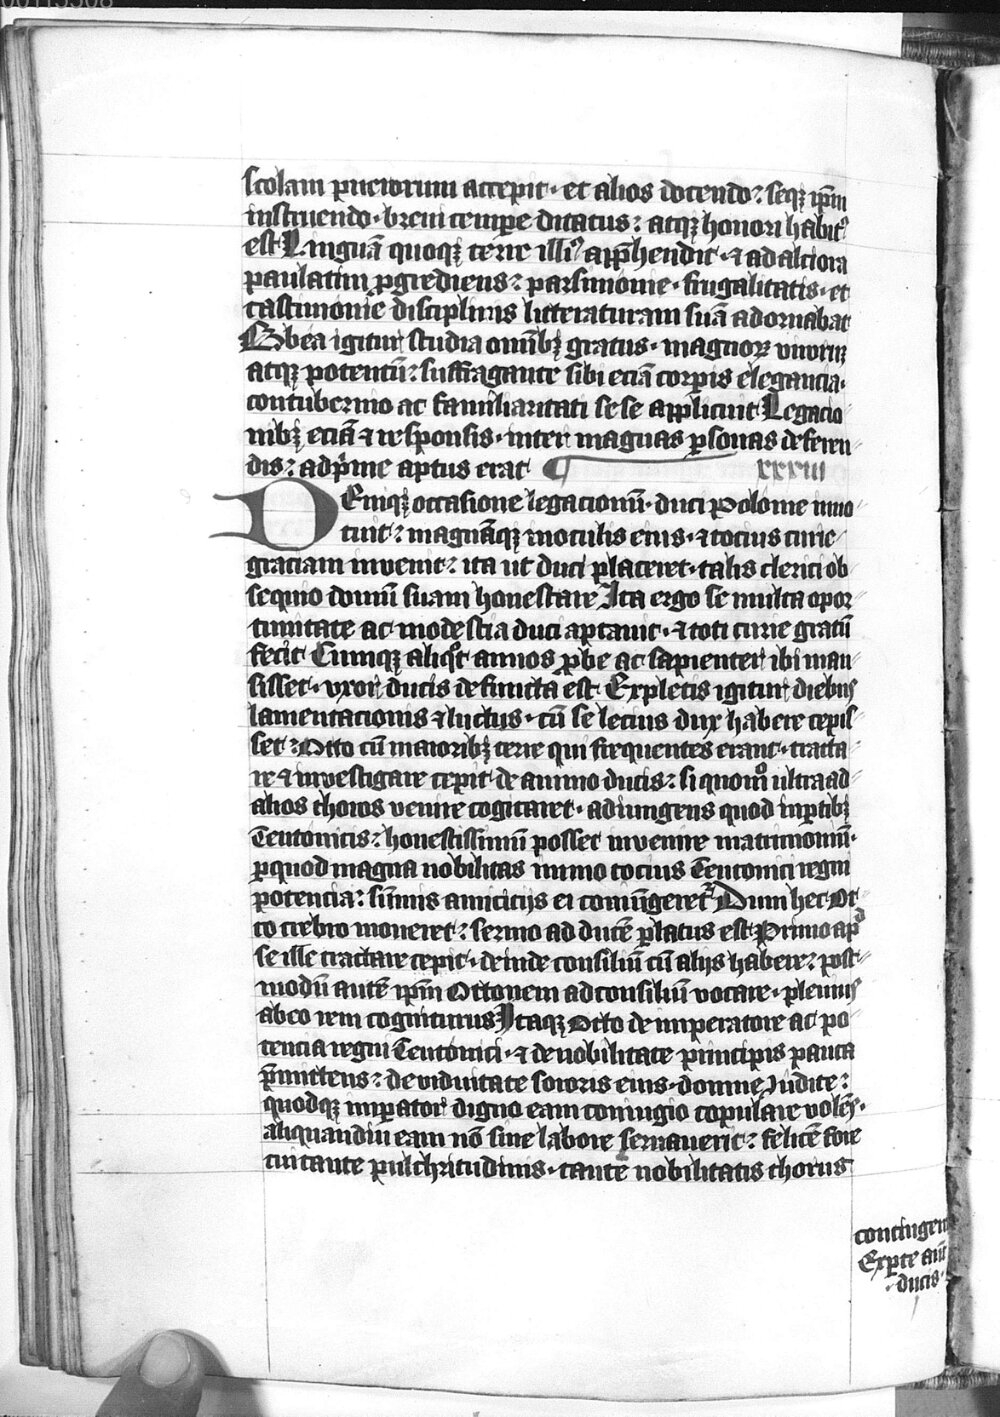 scolam puerorum accepit· et alios docendo: seqꝫ ip̄m
instruendo· breui temp̲e ditatus: atqꝫ honori habitꝰ
est Linguā quoqꝫ terre illiꝰ app̄hendit· ⁊ ad alciora
paulatim ꝓgrediens: parsimonie· frugalitatis· et
castimonie disciplinis litteraturam suā adornabat
Ob ea igitur studia omībꝫ gratus· magnorꝫ virorū
atqꝫ potentū: suffragante sibi eciā corꝑis elegancia·
contubernio ac familiaritati sese applicuit Legacio
nibꝫ eciā ⁊ responsis· inter magnas ꝑsonas deferen
dis: adp̄me aptus erat ¶ xxxiii
Deniqꝫ occasione legacionū· duci Polonie inno
tuit: magnāqꝫ in oculis eius· ⁊ tocius curie
graciam inuenit: ita ut duci placeret· talis clerici ob
sequio domū suam honestare Ita ergo se multa opor
tunitate ac modestia duci aptauit· ⁊ toti curie gratū
fecit Cumqꝫ aliqͦt annos ꝓbe ac sapienter ibi man
sisset· vxor ducis defuncta est Expletis igitur diebus
lamentacionis ⁊ luctus· cū se lecius dux habere cepis
set: Otto cū maioribꝫ terre qui frequentes erant· tracta
re ⁊ inuestigare cepit de animo ducis: si quomͦ ultra ad
alios thoros venire cogitaret· adiungens quod in ꝑtibꝫ
Teutonicis: honestissimū posset inuenire matrimoniū·
ꝑ quod magna nobilitas immo tocius Teutonici regni
potencia: sūmis amicitijs ei coniūgeretꝛ Dum hec Ot
to crebro moneret: sermo ad ducē ꝑlatus est Primo apᵈ
se ille tractare cepit· deinde consiliū cū alijs habere: post
modū autē ip̄m Ottonem ad consiliū vocare· plenius
ab eo rem cogniturus Itaqꝫ Otto de imperatore ac po
tencia regni Teutonici· ⁊ de nobilitate principis pauca
p̄mittens: de viduitate sororis eius· domne Iudite:
quodqꝫ imꝑator digno eam coniugio copulare volēs·
aliquandiu eam nō sine labore seruauerit: felicē fore
cui tante pulchritudinis· tante nobilitatis thorus
contingeret
Ex parte aūt
· ducis ·